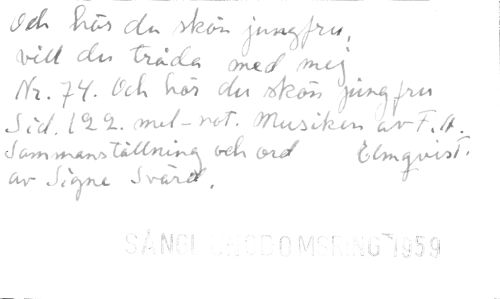 Och hör du skön jungfru,
vill du träda med mej
Nr. 74. Och hör du skön jungfru
Sid. 122. mel-not. Musiken av F. A.
Sammanställning och ord Elmqvist.
av Signe Svärd.
1959